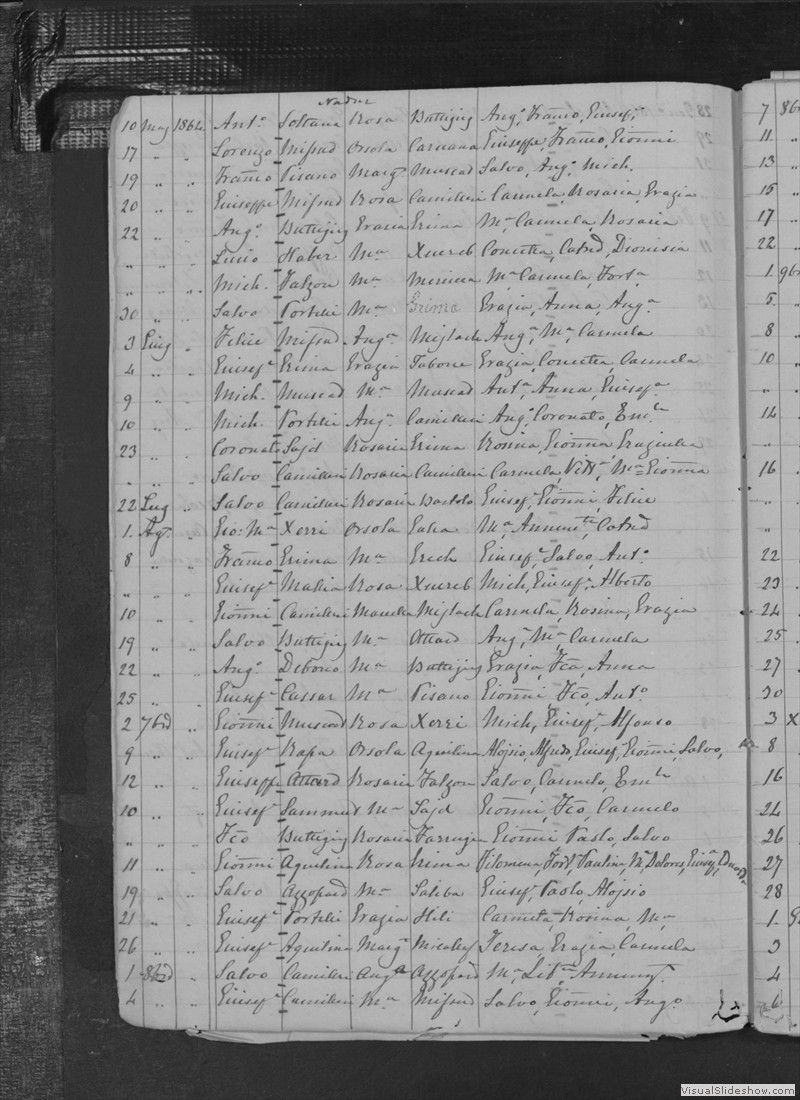 Nadur
10 May 1864 Ant.o Soltana Rosa Buttigieg Ang.o, Franco, Giusef.
17 „ „ Lorenzo Mifsud Orsola Caruana Giuseppe, Franco, Gionni
19 „ „ Franco Pisano Marg.a Muscad Salvo, Ang.o, Mich.
20 „ „ Giuseppe Mifsud Rosa Camilleri Carmela, Rosaria, Grazia
22 „ „ Ang.o Buttigieg Grazia Grima M.a Carmela, Rosaria
„ „ „ Haber M.a Xuereb Concetta, Catrd, Dionisia
„ „ „ Mich. Falzon M.a M.a Carmela, Fort.a
30 „ „ Salvo Portelli M.a Grima Grazia, Anna, Ang.a
3 Giug „ Felice Mifsud Ang.a Mizlach Ang.a, M.a, Carmela
4 „ „ Giusef.e Grima Grazia Tabone Grazia, Concetta, Carmela
9 „ „ Mich. Muscad M.a Muscad Ant.a, Anna, Giusef.a
10 „ „ Mich. Portelli Ang.a Camilleri Ang.o, Coronato, Em.le
23 „ „ Coronato Sajd Rosaria Grima Rosina, Gionna, Graziulla
„ „ Salvo Camilleri Rosaria Camilleri Carmela, Vitt.a, M.a Gionna
22 Lug „ Salvo Camilleri Rosaria Bartolo Giusef.e, Gionni, Felice
1 Ag.o „ Gio: M.a Xerri Orsola Galea M.a, Catrd
8 „ „ Franco Grima M.a Erich Giusef.e, Salvo, Ant.o
„ „ „ Giusef.e Mallia Rosa Xuereb Mich, Giusef.e, Alberto
10 „ „ Gionni Camilleri Manella Mizlach Carmela, Rosina, Grazia
19 „ „ Salvo Buttigieg M.a Attard Ang.a, M.a, Carmela
22 „ „ Ang.o Debono M.a Buttigieg Grazia, Fca, Anna
25 „ „ Giusef.e Cassar M.a Pisano Gionni, Fco, Ant.o
2 7brd „ Gionni Muscad Rosa Xerri Mich, Giusef.e, Alfonso
9 „ „ Giusef.e Rapa Orsola Aquilina Alojsio, Alfredo, Giusef.e, Gionni, Salvo,
12 „ „ Giuseppe Attard Rosaria Falzon Salvo, Carmelo, Em.le
10 „ „ Giusef.e Sammut M.a Sajd Gionni, Fco, Carmelo
„ „ „ Fco Buttigieg Rosaria Farrugia Gionni Paolo, Salvo
11 „ „ Gionni Aquilina Rosa Grima Filomena, Fort.a, Paulina, M.a Dolores, Giusef.a
19 „ „ Salvo Azzopard M.a Saliba Giusef.e, Paolo, Alojsio
21 „ „ Giusef.e Portelli Grazia Hili Carmela, Rosina, M.a
26 „ „ Giusef.e Aquilina Marg.a Micalef Teresa, Grazia, Carmela
1 8brd „ Salvo Camilleri Ang.a Azzopard M.a, Lib.ta, Annunz.
4 „ „ Giusef.e Camilleri M.a Mifsud Salvo, Gionni, Ang.o
7 8br
11 „
13 „
15 „
17 „
22 „
1 9br
5 „
8 „
10 „
„
14 „
„
16 „
„
„
22
23
24
25
27
30
3 X
8
16
24
26
27
28
1
3
4
6
VisualSlideshow.com